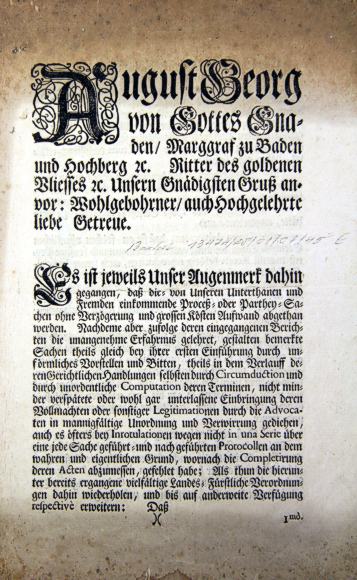 August Georg
von Gottes Gna-
den/ Marggraf zu Baden
und Hochberg ꝛc. Ritter des goldenen
Vliesses ꝛc. Unsern Gnädigsten Gruß an-
vor: Wohlgebohrner/ auch Hochgelehrte
liebe Getreue.
Es ist jeweils Unser Augenmerk dahin
gegangen, daß die von Unseren Unterthanen und
Fremden einkommende Proceß- oder Parthey-Sa-
chen ohne Verzögerung und grossen Kösten Aufwand abgethan
werden. Nachdeme aber zufolge deren eingegangenen Berich-
ten die unangenehme Erfahrnus gelehret, gestalten bemerkte
Sachen theils gleich bey ihrer ersten Einführung durch un-
förmliches Vorstellen und Bitten, theils in dem Verlauff de-
ren Gerichtlichen Handlungen selbsten durch Circumduction und
durch unordentliche Computation deren Terminen, nicht min-
der verspätete oder wohl gar unterlassene Einbringung deren
Vollmachten oder sonstiger Legitimationen durch die Advoca-
ten in mannigfältige Unordnung und Verwirrung gediehen,
auch es öfters bey Intotulationen wegen nicht in una Serie über
eine jede Sache geführt- und nach geführten Protocollen an dem
wahren und eigentlichen Grund, wornach die Completirung
deren Acten abzumessen, gefehlet habe; Als thun die hierun-
ter bereits ergangene vielfältige Landes-Fürstliche Verordnun-
gen dahin wiederholen, und bis auf anderweite Verfügung
respective erweitern: Daß
)( 1mò.